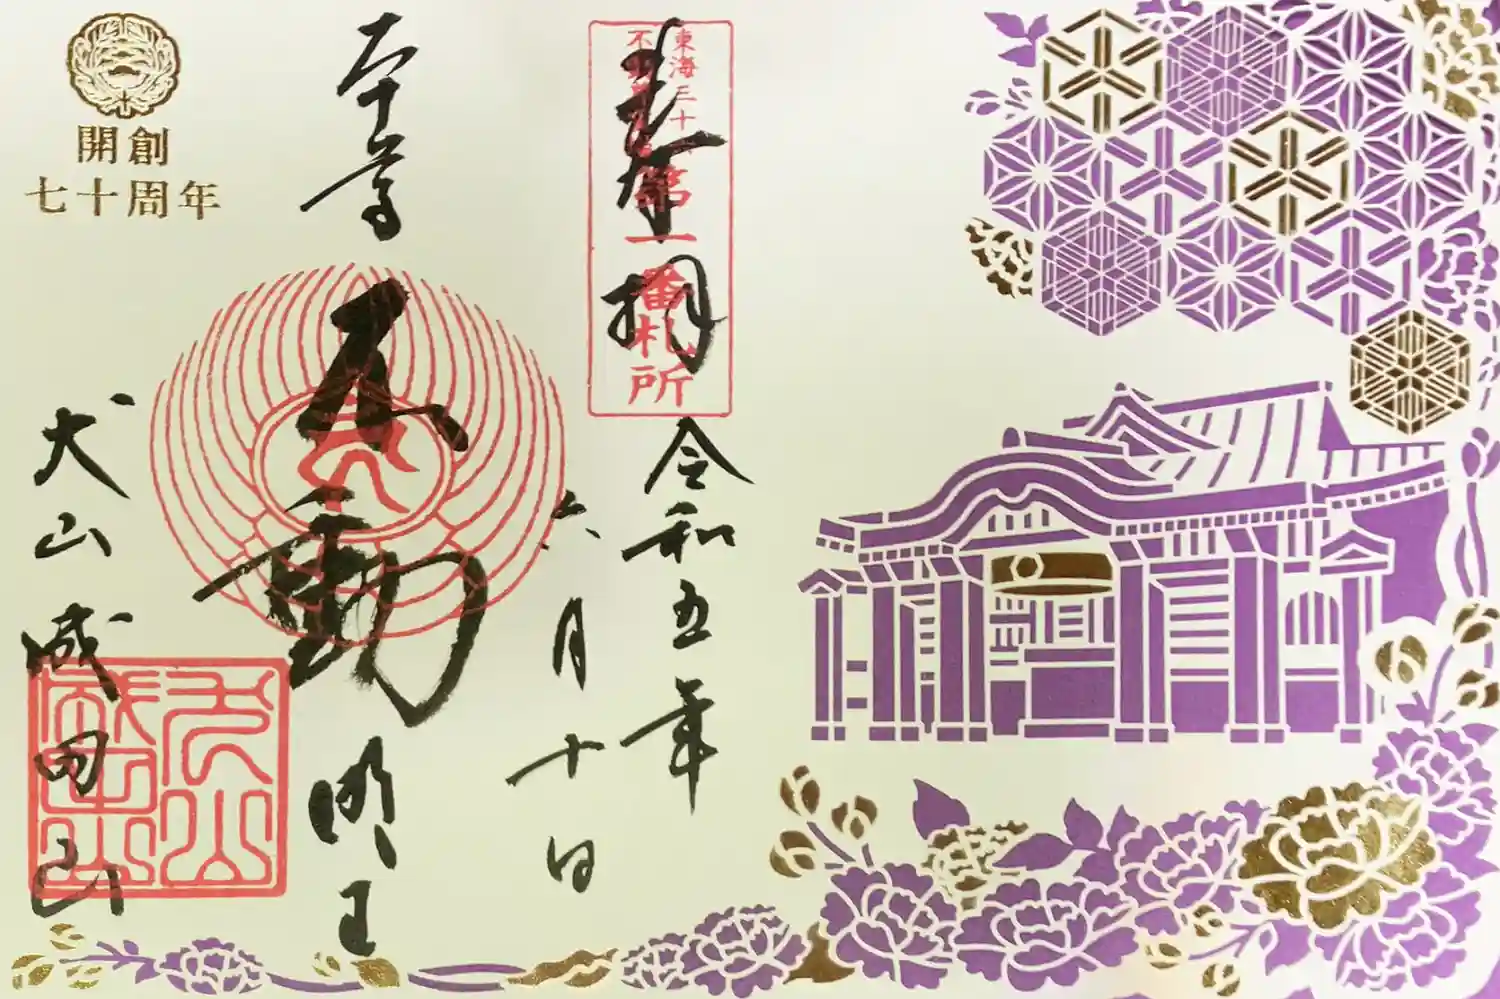 奉拝
東海三十六
不動尊霊場
第一番札所
令和五年
六月十日
本尊
不動明王
開創
七十周年
犬山成田山